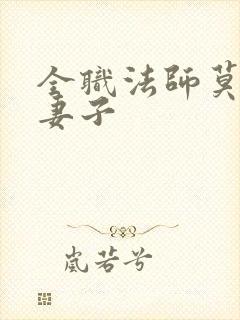 全職法師莫
妻子
嵐若兮